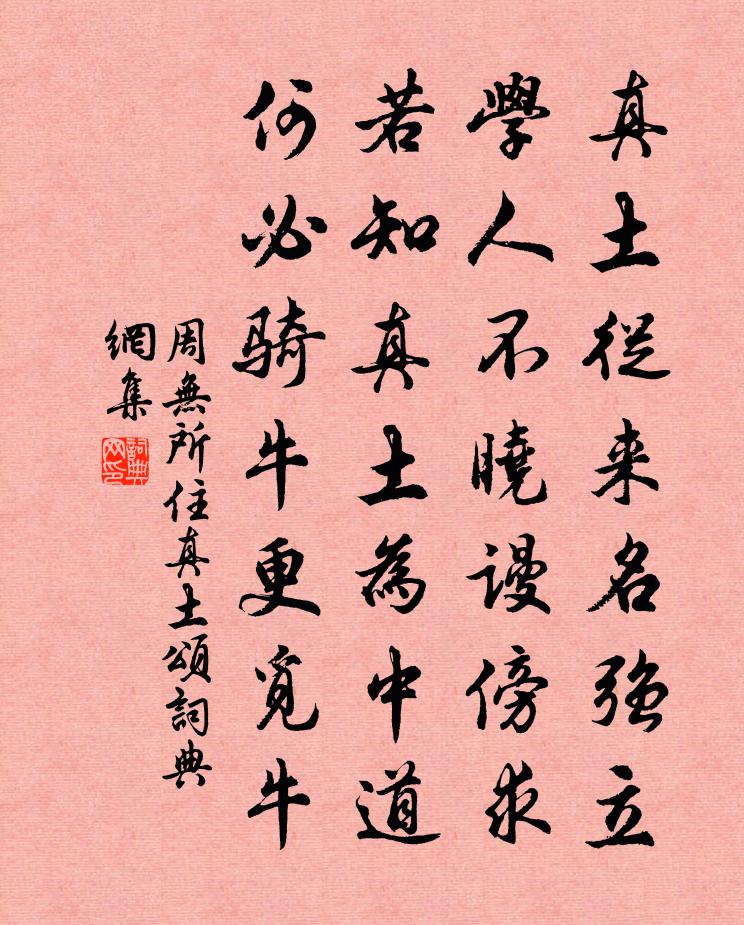 真土從来名強立
學人不曉謾傍求
若知真土為中道
何必騎牛更覓牛
周無所住真土頌詞典
網集
詞典
网印